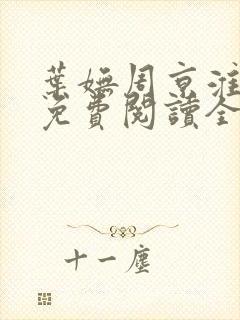 葉嫵周京淮
免費閱讀全
十一塵